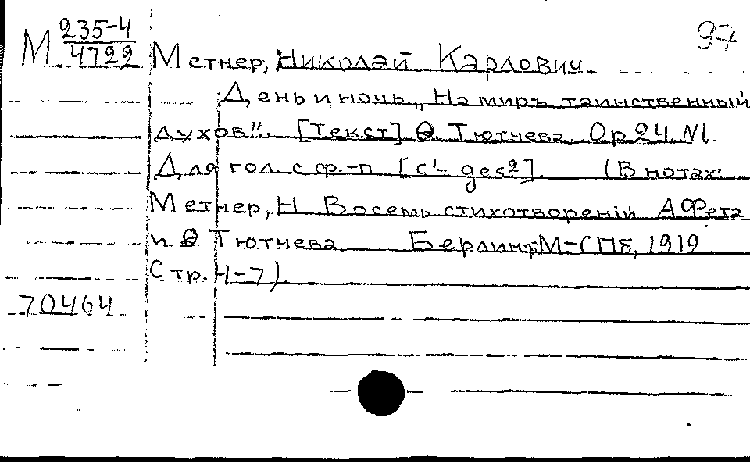 97
М 235-4
4722
Метнер, Николай Карлович
День и ночь, „На миръ таинственный
духов". [Текст] Ѳ Тютчева. Op 24 N1.
Для гол. с ф-п [c¹- ges²]. (В нотах:
Метнер, Н Восемь стихотвореній А Фета
и Ѳ Тютчева Берлин; М-СПб, 1919
Стр. 4-7)
70464